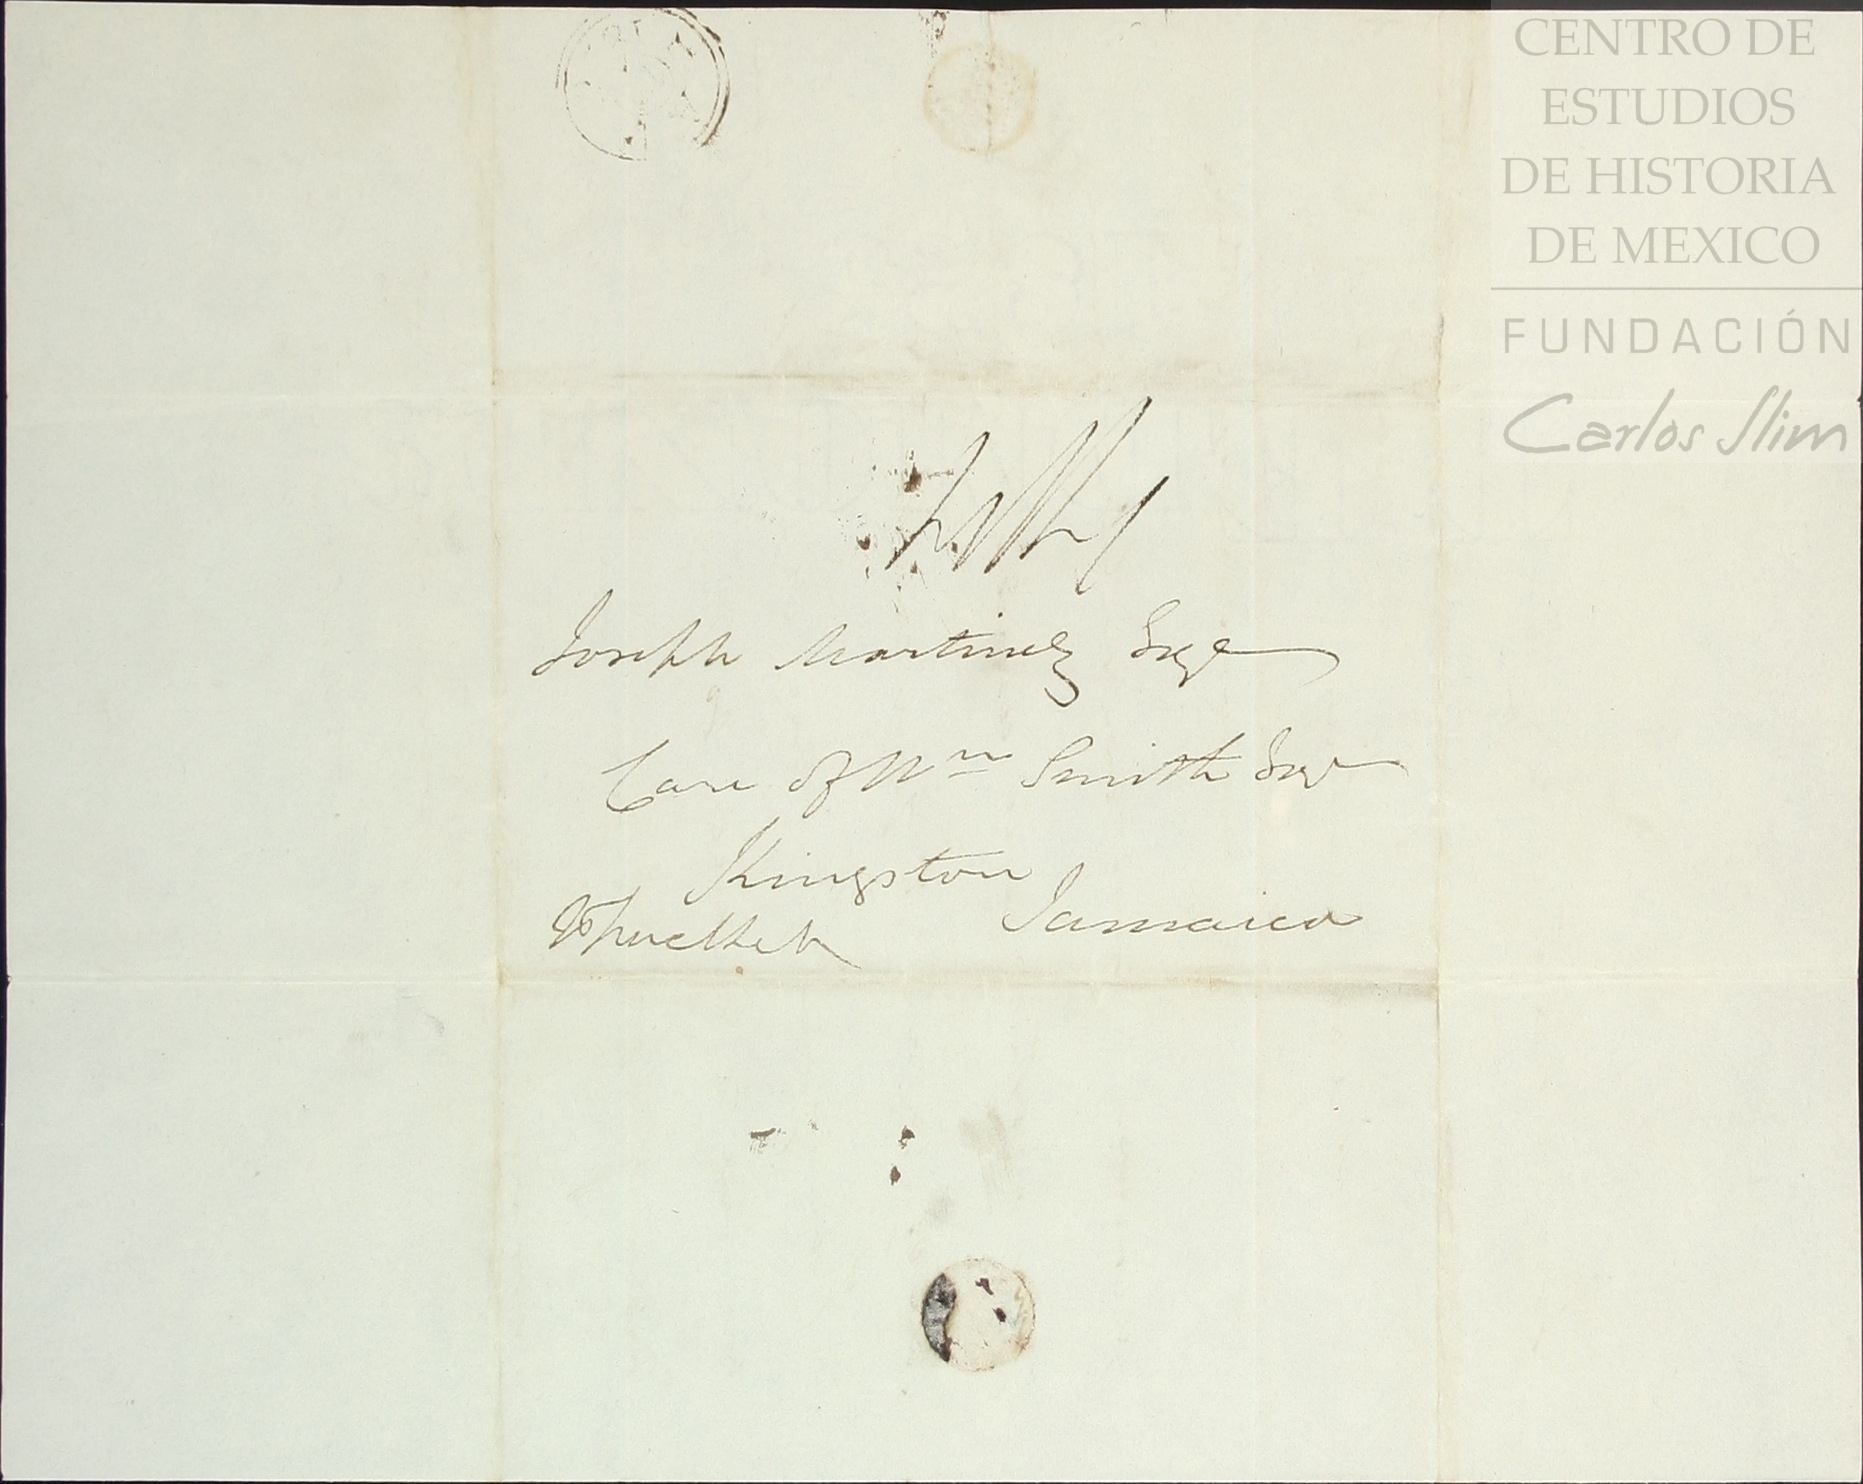 CENTRO DE
ESTUDIOS
DE HISTORIA
DE MEXICO
FUNDACIÓN
Carlos Slim
Joseph Martinez Esqe
Care of Wm Smith Esqr
Kingston
Jamaica